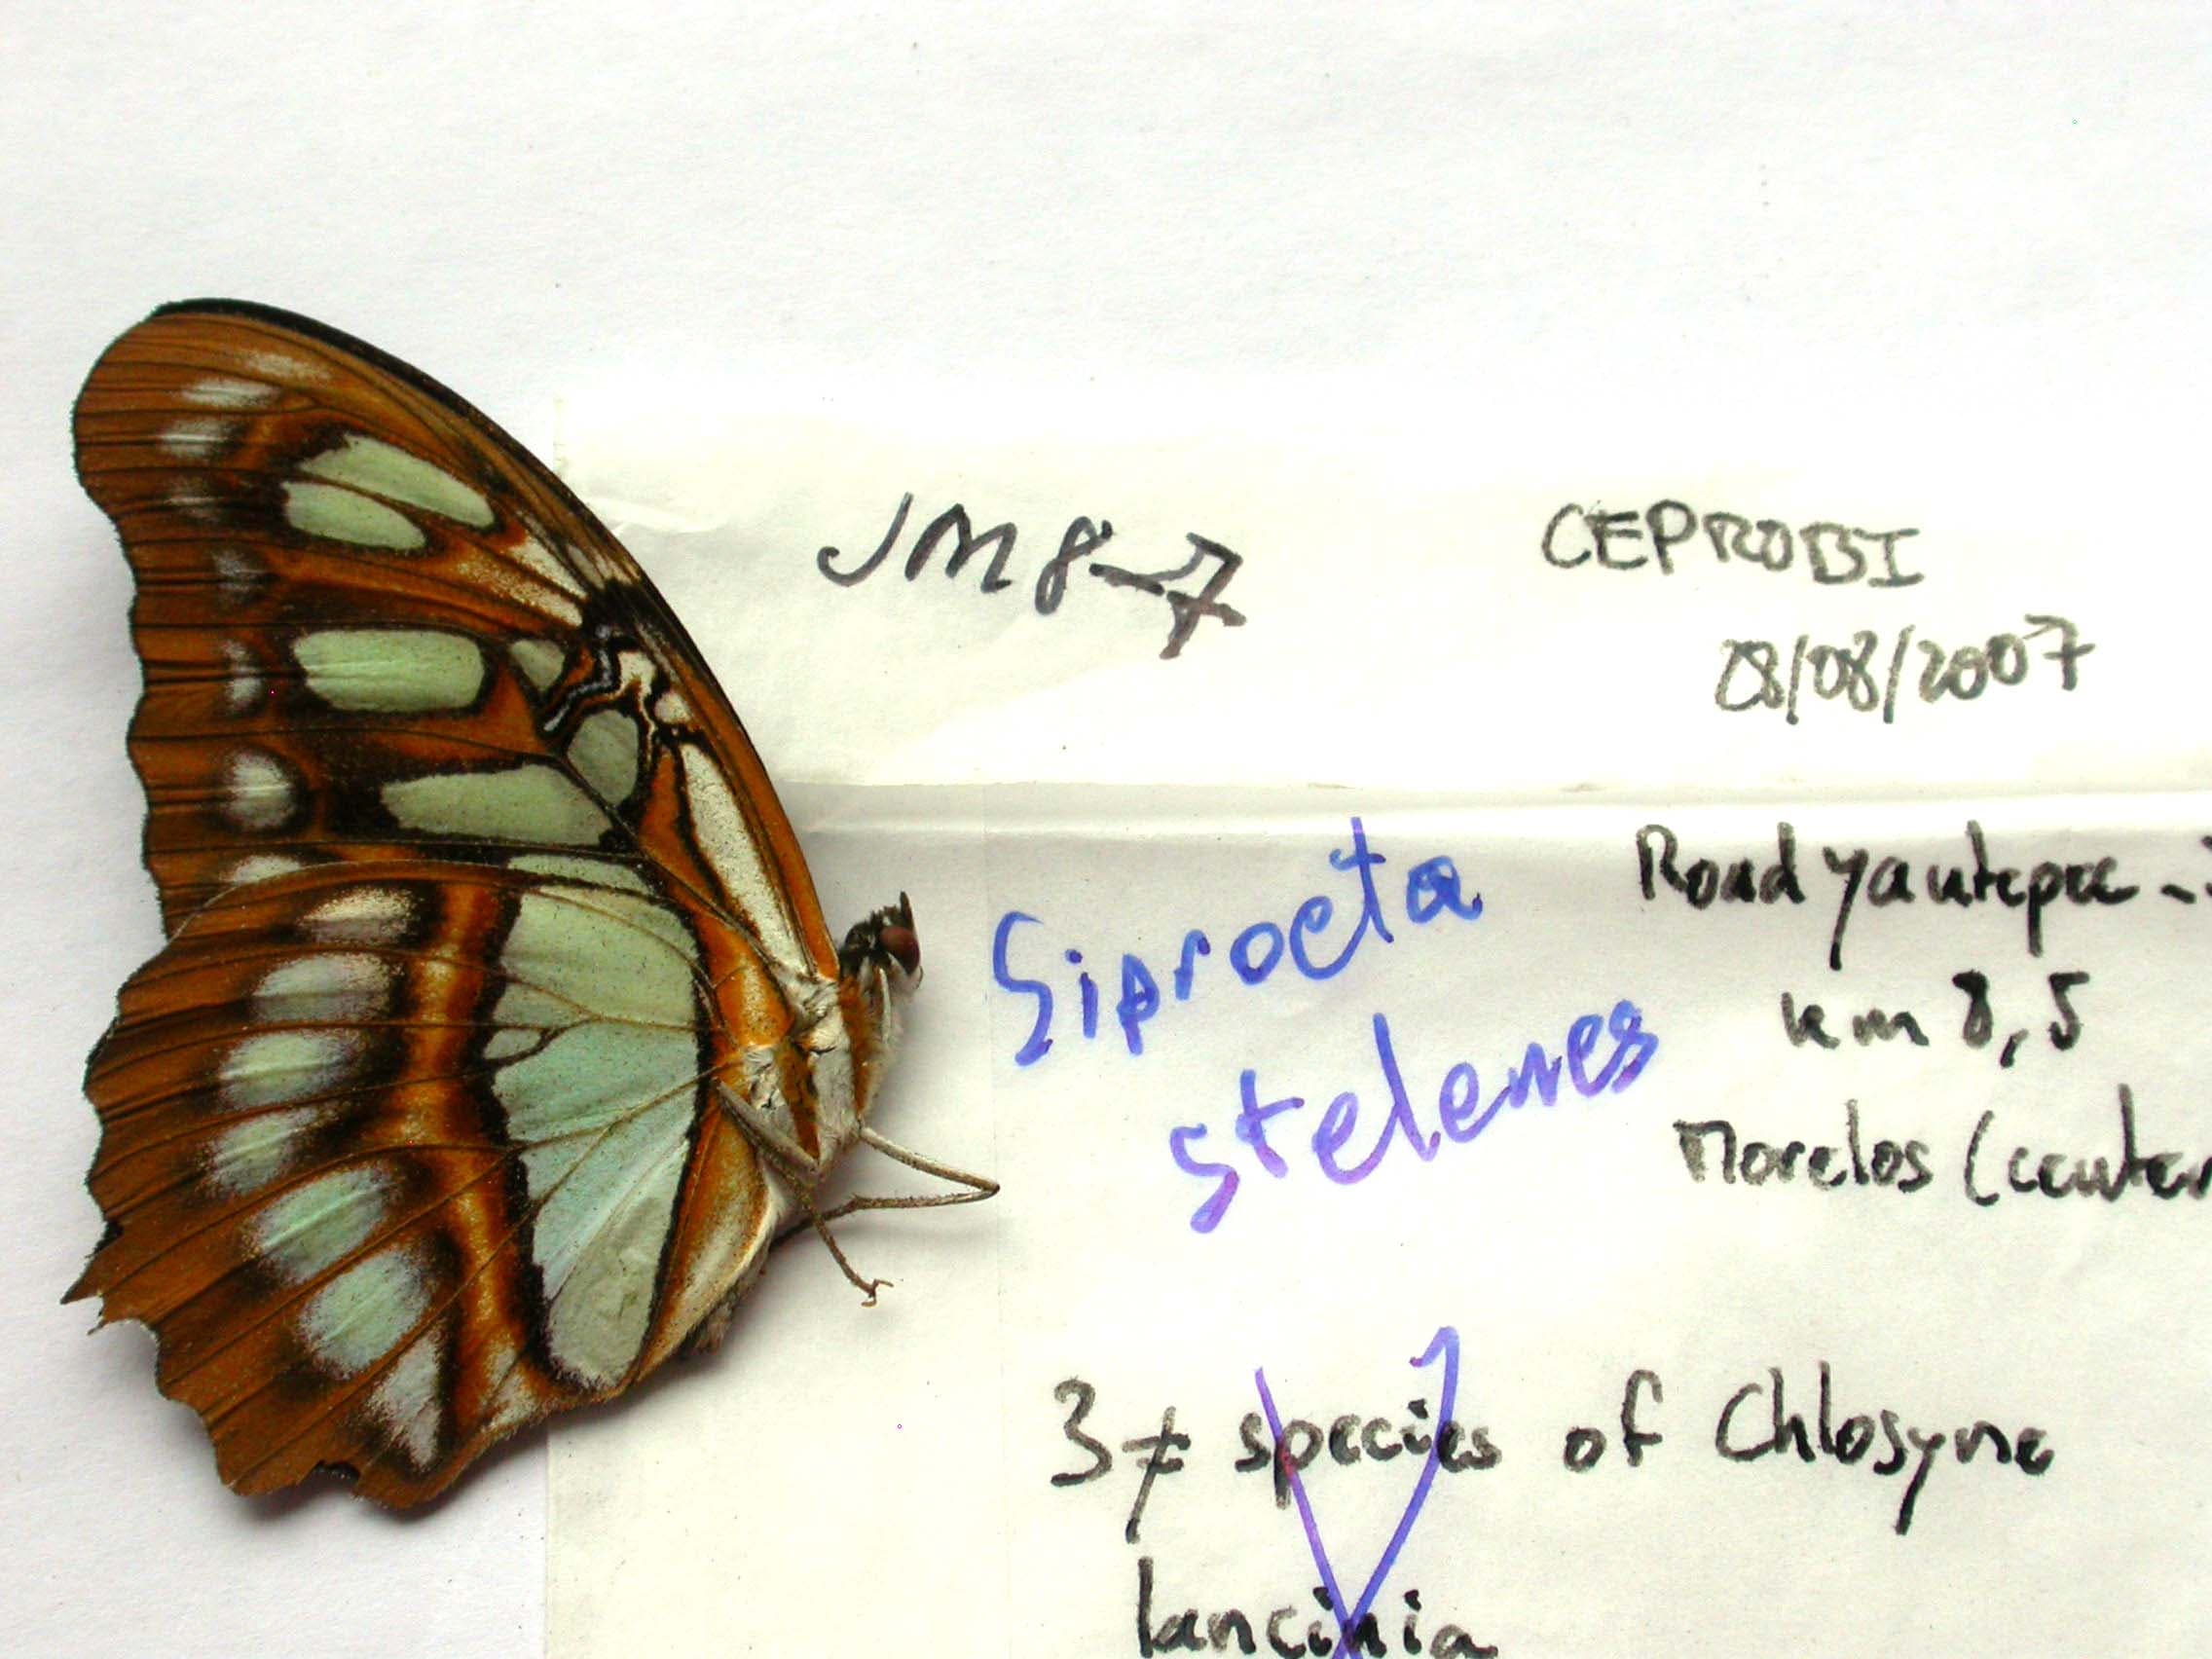 JM8-7
CEPROBI
08/08/2007
Siprocta
stelenes
Road Yautepec -
km 8,5
Morelos (center
3 ≠ species of Chlosyne
lancinia